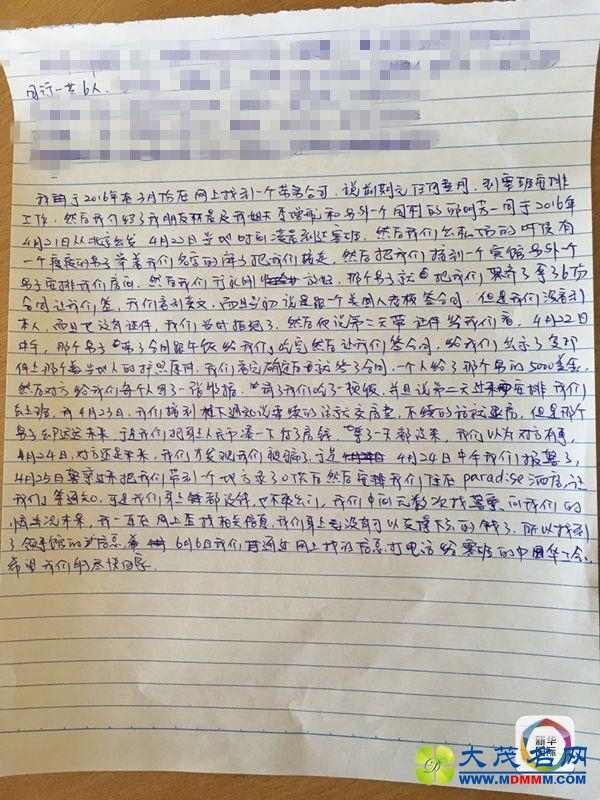 同行一共6人.
我由于2016年在3月份在网上找到一个劳务公司.说前期无任何费用.到塞班安排
工作.然后我们
和另外一个同村的
一同于2016年
4月21日从北京出发 4月22日当地时间凌晨到达塞班.然后我们出机场的时候有
一个瘦瘦的男子举着我们名字的牌子把我们接走.然后把我们接到一个宾馆另外一个
男子安排我们房间.然后我们行李刚放好.那个男子就把我们 拿了6份
合同让我们签.我们看到英文.而且当初说是跟一个美国人老板签合同.但是我们没看到
本人.而且也没有证件.我们当时拒绝了.然后他说第二天带证件给我们看.4月22日
中午.那个男子带了合同跟午饭给我们.吃完然后让我们签合同.给我们出示了复印
件上那个当地人的护照原件.我们看完确定后就签了合同.一个人给了那个男的5000美金.
然后对方给我们每个人写了一张收据.请我们吃了顿饭.并且说第二天过来安排我们
去上班.到4月23日.我们接到楼下通知说要续的话就交房费.不续的话就退房.但是那个
男子却迟迟未来.于是我们把身上人民币凑一下付了房钱.等了一天都没来.我们以为对方有事.
4月24日.对方还是未来.我们才发现我们被骗了.于是 4月24日中午我们报警了.
4月25日警察过来把我们带到一个地方录了口供后然后安排我们住在paradise酒店.让
我们等通知.可是我们身上钱都没有.也不敢出门.我们中间无数次找警察问我们的
事情都没未果.我一直在网上查找相关信息.我们身上也没有可以支撑下去的钱了.所以找到
了领事馆的 信息. 6月6日我们通过网上找的信息.打电话给塞班的中国华工会.
希望我们能尽快回家.
新华
国际
大茂名网
WWW.MDMMM.COM